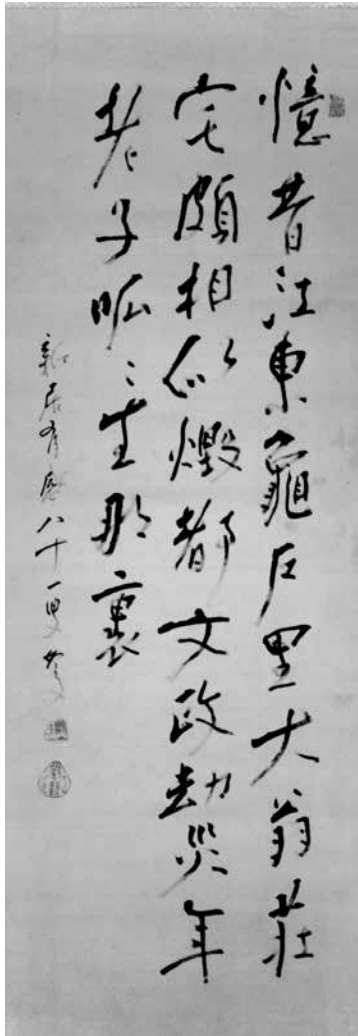 憶昔江東龜戸里大翁莊
宅頗相似燬都文政劫災年
老子呱〻生那裏
新居有感 八十一叟